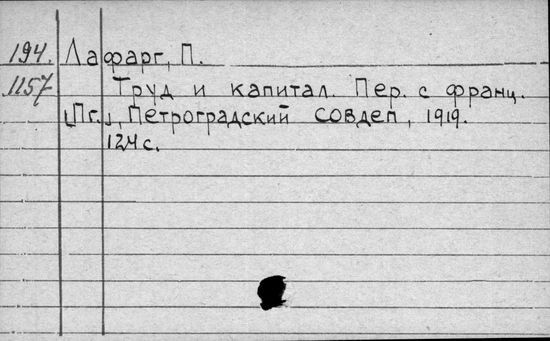 194. Лафарг, П.
1157 Труд и капитал. Пер. с франц.
[Пг.], Петроградский совдеп, 1919.
124 с.